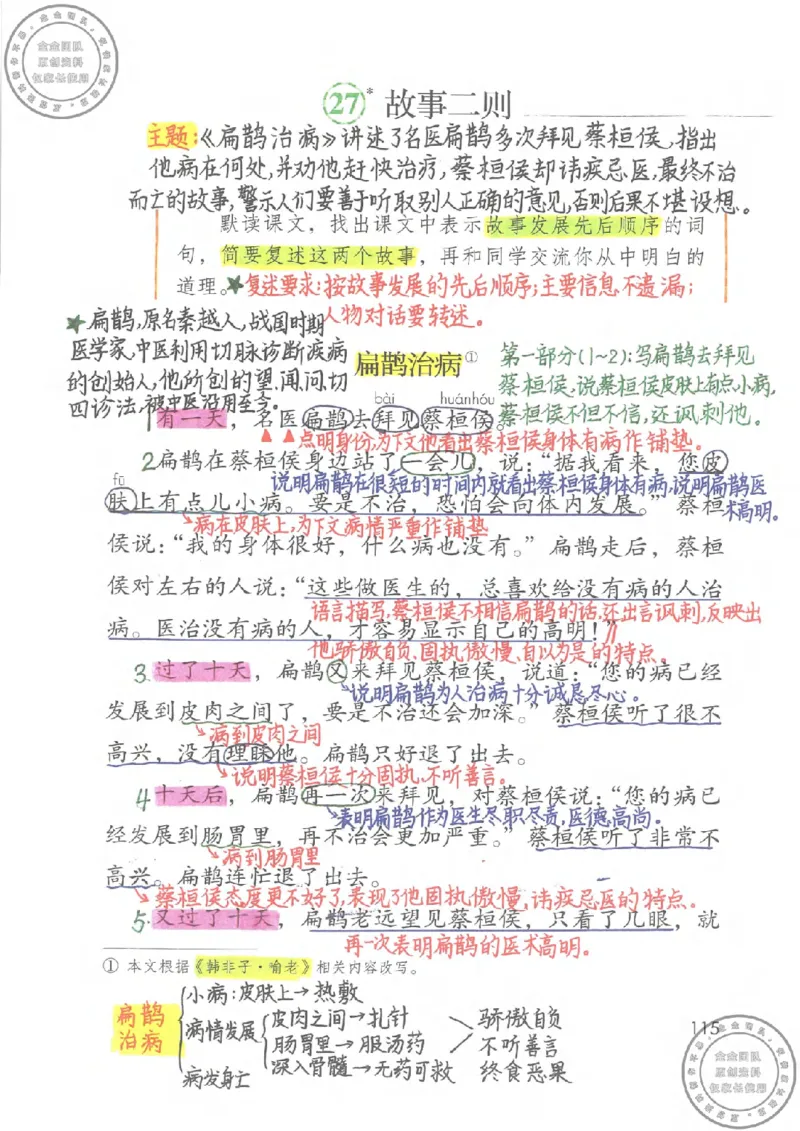 金金团队
原创资料
仅家长使用
27* 故事二则
主题:《扁鹊治病》讲述了名医扁鹊多次拜见蔡桓侯,指出
他病在何处,并劝他赶快治疗,蔡桓侯却讳疾忌医,最终不治
而亡的故事,警示人们要善于听取别人正确的意见,否则后果不堪设想。
默读课文,找出课文中表示故事发展先后顺序的词
句,简要复述这两个故事,再和同学交流你从中明白的
道理。★复述要求:按故事发展的先后顺序;主要信息不遗漏;
人物对话要转述。
★扁鹊,原名秦越人,战国时期
医学家,中医利用切脉诊断疾病
的创始人,他所创的望、闻、问、切
四诊法,被中医沿用至今。
扁鹊治病①
第一部分(1~2):写扁鹊去拜见
蔡桓侯,说蔡桓侯皮肤上有点小病,
蔡桓侯不但不信,还讽刺他。
bài huánhóu
1有一天,名医扁鹊去拜见蔡桓侯。
点明身份,为下文他看出蔡桓侯身体有病作铺垫。
2扁鹊在蔡桓侯身边站了一会儿,说:“据我看来,您皮
说明扁鹊在很短的时间内就看出蔡桓侯身体有病,说明扁鹊医
术高明。
fū
肤上有点儿小病。要是不治,恐怕会向体内发展。”蔡桓
病在皮肤上,为下文病情严重作铺垫
侯说:“我的身体很好,什么病也没有。”扁鹊走后,蔡桓
侯对左右的人说:“这些做医生的,总喜欢给没有病的人治
语言描写,蔡桓侯不相信扁鹊的话,还出言讽刺,反映出
病。医治没有病的人,才容易显示自己的高明!”
他骄傲自负、固执傲慢、自以为是的特点。
3.过了十天,扁鹊又来拜见蔡桓侯,说道:“您的病已经
说明扁鹊为人治病十分诚恳尽心。
发展到皮肉之间了,要是不治还会加深。”蔡桓侯听了很不
病到皮肉之间
高兴,没有理睬他。扁鹊只好退了出去。
说明蔡桓侯十分固执,不听善言。
4十天后,扁鹊再一次来拜见,对蔡桓侯说:“您的病已
表明扁鹊作为医生尽职尽责,医德高尚。
经发展到肠胃里,再不治会更加严重。”蔡桓侯听了非常不
病到肠胃里
高兴。扁鹊连忙退了出去。
蔡桓侯态度更不好了,表现了他固执傲慢,讳疾忌医的特点。
5.又过了十天,扁鹊老远望见蔡桓侯,只看了几眼,就
再一次表明扁鹊的医术高明。
① 本文根据《韩非子·喻老》相关内容改写。
扁鹊
治病
小病:皮肤上→热敷
病情发展
皮肉之间→扎针
肠胃里→服汤药
深入骨髓→无药可救
病发身亡
骄傲自负
不听善言
终食恶果
115
金金团队
原创资料
仅家长使用